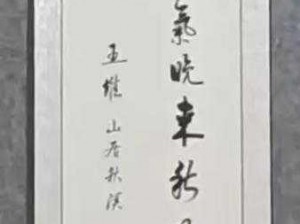 氣晚来秋
王維 山居秋溟